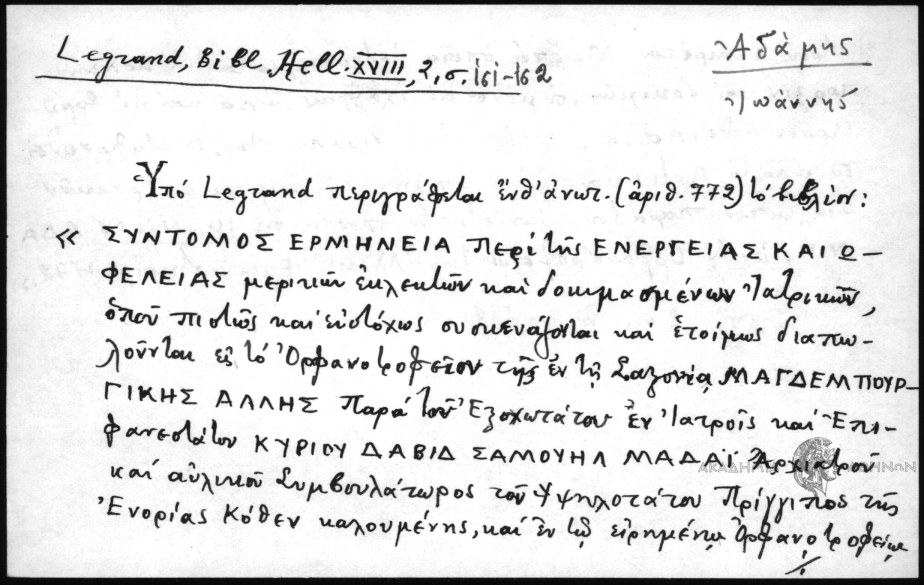 Legrand, Bibl. Hell. XVIII, 2, σ. 161-162
Ἀδάμης
Ἰωάννης
Ὑπό Legrand περιγράφεται ἔνθ' ἀνωτ. (ἀριθ. 772) τό βιβλίον:
« ΣΥΝΤΟΜΟΣ ΕΡΜΗΝΕΙΑ περί τῆς ΕΝΕΡΓΕΙΑΣ ΚΑΙ Ω-
ΦΕΛΕΙΑΣ μερικῶν ἐκλεκτῶν καί δοκιμασμένων Ἰατρικῶν,
ὁποῦ πιστῶς καί εὐστόχως συσκευάζονται καί ἑτοίμως διαπω-
λοῦνται εἰς τό Ὀρφανοτροφεῖον τῆς ἐν τῇ Σαξονίᾳ ΜΑΓΔΕΜΠΟΥΡ-
ΓΙΚΗΣ ΑΛΛΗΣ Παρά τοῦ Ἐξοχωτάτου ἐν Ἰατροῖς καί Ἐπι-
φανεστάτου ΚΥΡΙΟΥ ΔΑΒΙΔ ΣΑΜΟΥΗΛ ΜΑΔΑΪ Ἀρχιατροῦ
καί αὐλικοῦ Συμβουλάτωρος τοῦ Ὑψηλοτάτου Πρίγγιπος τῆς
Ἐνορίας Κόθεν καλουμένης, καί ἐν τῷ εἰρημένῳ Ὀρφανοτροφείῳ
./.